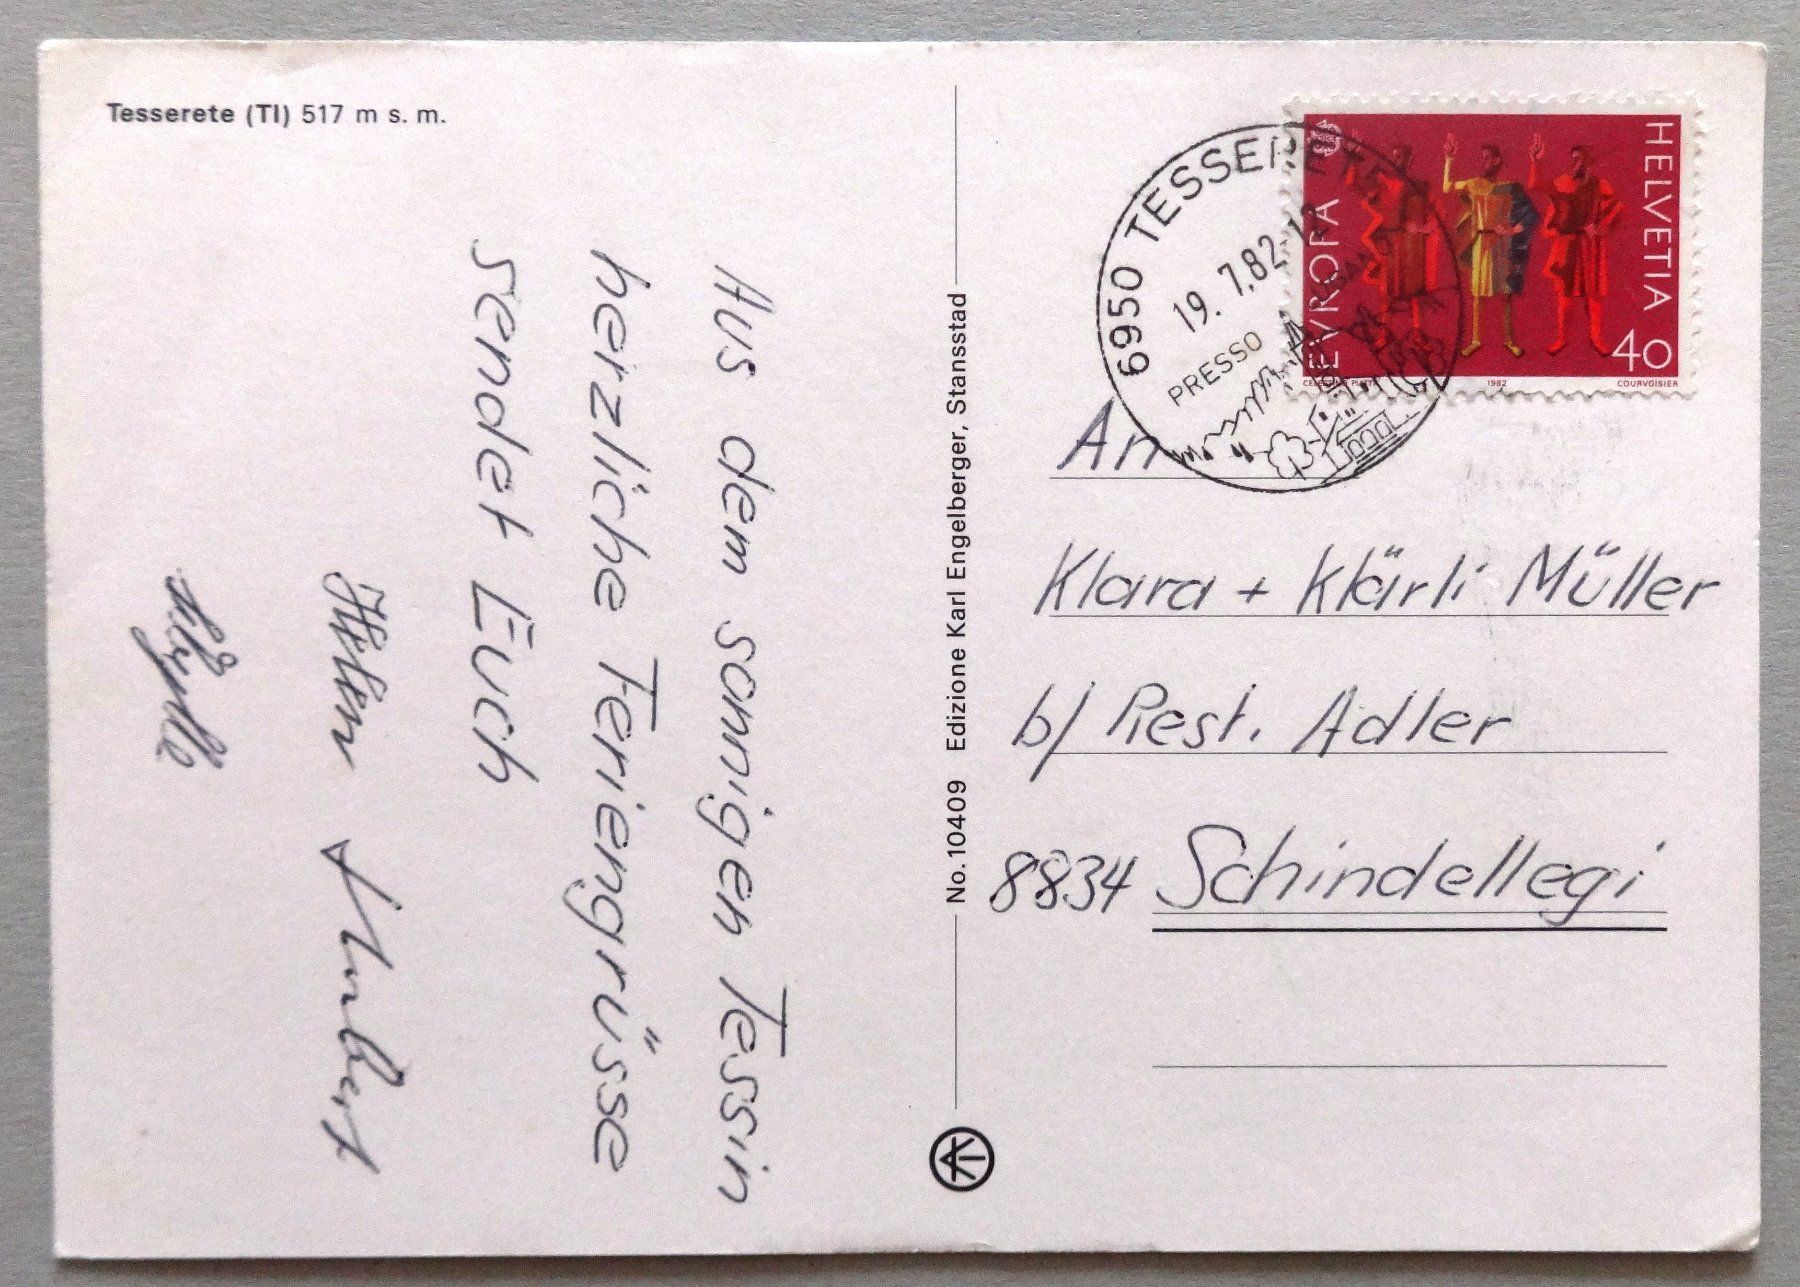 Tesserete (TI) 517 m s. m.
Aus dem sonnigen Tessin
herzliche Feriengrüsse
sendet Euch
No. 10409 Edizione Karl Engelberger, Stansstad
6950 TESSERETE
19. 7.82
PRESSO
HELVETIA
EVROPA
40
CELESTINO PIATTI 1982 COURVOISIER
An
Klara + Klärli Müller
b/ Rest. Adler
8834 Schindellegi